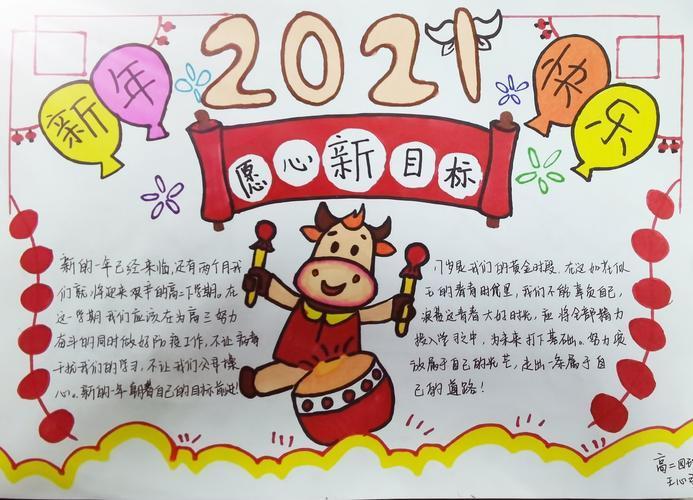 2021
新年
快乐
愿心新目标
新的一年已经来临,还有两个月我
们就将迎来艰辛的高二下学期。在
这一学期我们应该在为高三努力
奋斗的同时做好防疫工作,不让病毒
干扰我们的学习,不让我们父母操
心。新的一年朝着自己的目标前进!
17岁是我们的黄金时段,在这如花似
玉的青春时代里,我们不能辜负自己,
浪费这青春大好时光,应将全部精力
投入学习之中,为未来打下基础。努力绽
放属于自己的光芒,走出一条属于自
己的道路!
高二四
王心